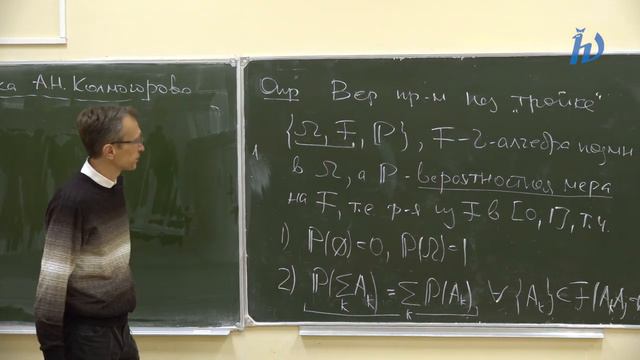 ка А.Н. Колмогорова
Опр Вер пр-м наз „тройка“
{Ω, F, ℙ}, F - σ-алгебра подмн
в Ω, а ℙ - вероятностная мера
на F, т.е. ф-я из F в [0,1], т.ч.
1) ℙ(∅)=0, ℙ(Ω)=1
2) ℙ(∑ₖ Aₖ) = ∑ₖ ℙ(Aₖ) ∀ {Aₖ} ∈ F (AₖA